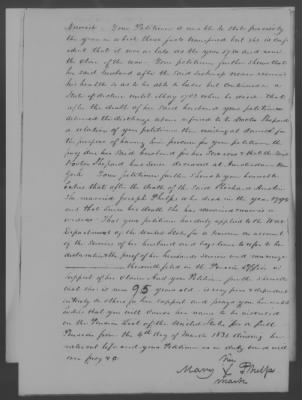 Discharge. Your Petitioner is unable to state precisely
the year in which these facts transpired but she is conf-
ident that it was as late as the year 1780 and near
the close of the war. Your petitioner further shows that
her said husband after the said discharge never recovered
his health so as to be able to labor but continued in a
State of decline until May 1788 when he died. That
after the death of her said husband your petitioner
delivered the discharge above referred to to Doctor Shepard
a relation of your petitioner then residing at
the purpose of having him procure for your petitioner the
pay due her said husband for his services & that the said
Doctor Shepard has since deceased at Amsterdam New
York. Your petitioner further shows to your honorable
that after the death of the said Richard
She married Joseph Phelps who died in the year 1794
and that since his death she has remained
widow. That your petitioner has duly applied to the War
Department of the United States for a Pension on account
of the services of her husband and begs leave to refer to her
declaration the proof of her husbands services and marriage
now filed in the Pension Office in
support of her claim. And your Petitioner further shows
that she is now 95 years old is very poor & dependent
entirely on others for her support and prays your honorable
bodies that you will cause her name to be inscribed
on the Pension List of the United States for a full
Pension from the 4th day of March 1831 during her
natural life and your Petitioner as in duty bound will
ever pray &c.
her
Mary X Phelps
mark